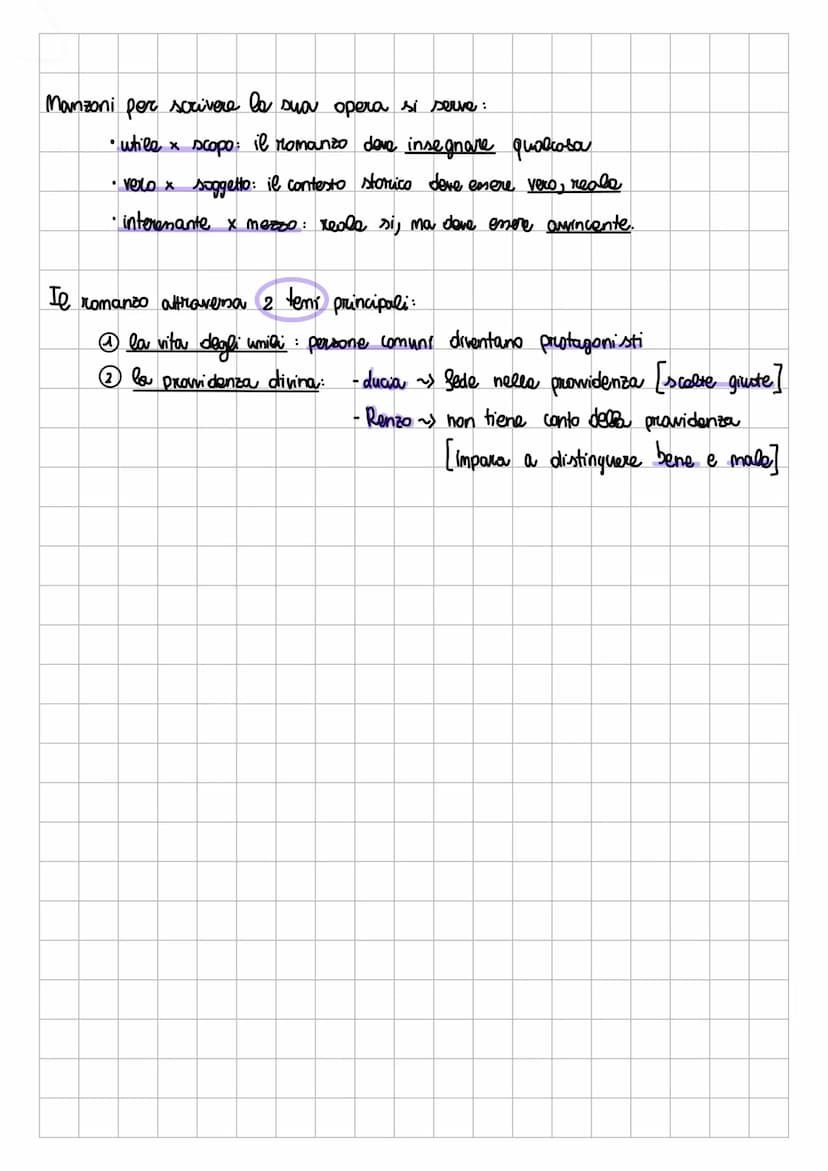 Manzoni per scrivere la sua opera si serve:
· utile x scopo: il romanzo deve insegnare qualcosa
· vero x soggetto: il contesto storico deve essere vero, reale
· interessante x mezzo: reale si, ma deve essere avvincente.
Il romanzo attraversa 2 temi principali:
① la vita degli umili : persone comuni diventano protagonisti
② la provvidenza divina: - Lucia ~> fede nella provvidenza [scelte giuste]
- Renzo ~> non tiene conto della provvidenza
[impara a distinguere bene e male]